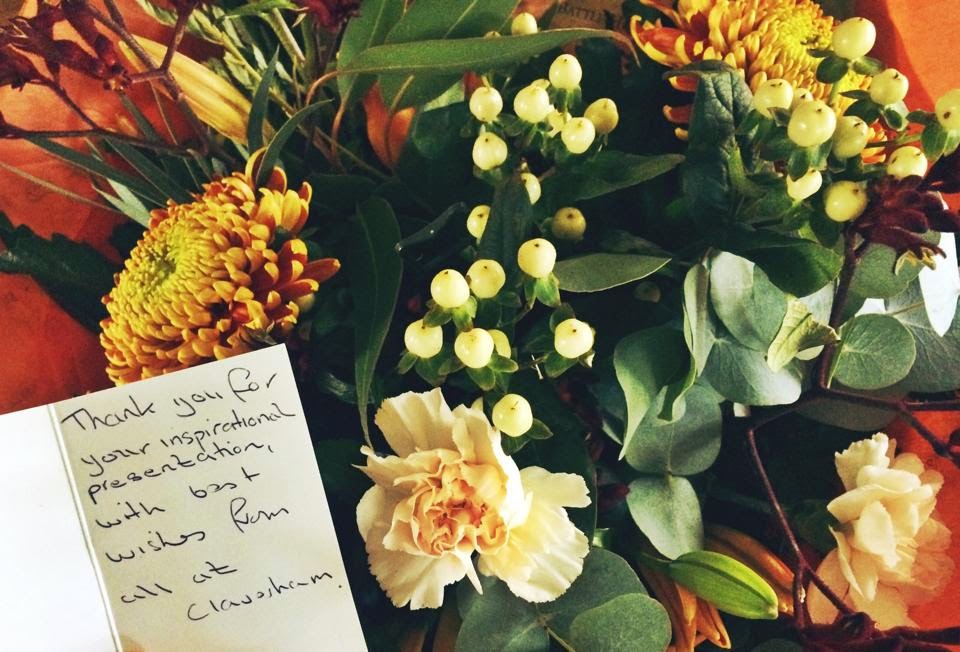 Thank you for
your inspirational
presentation,
with best
wishes from
all at
Clavesham.